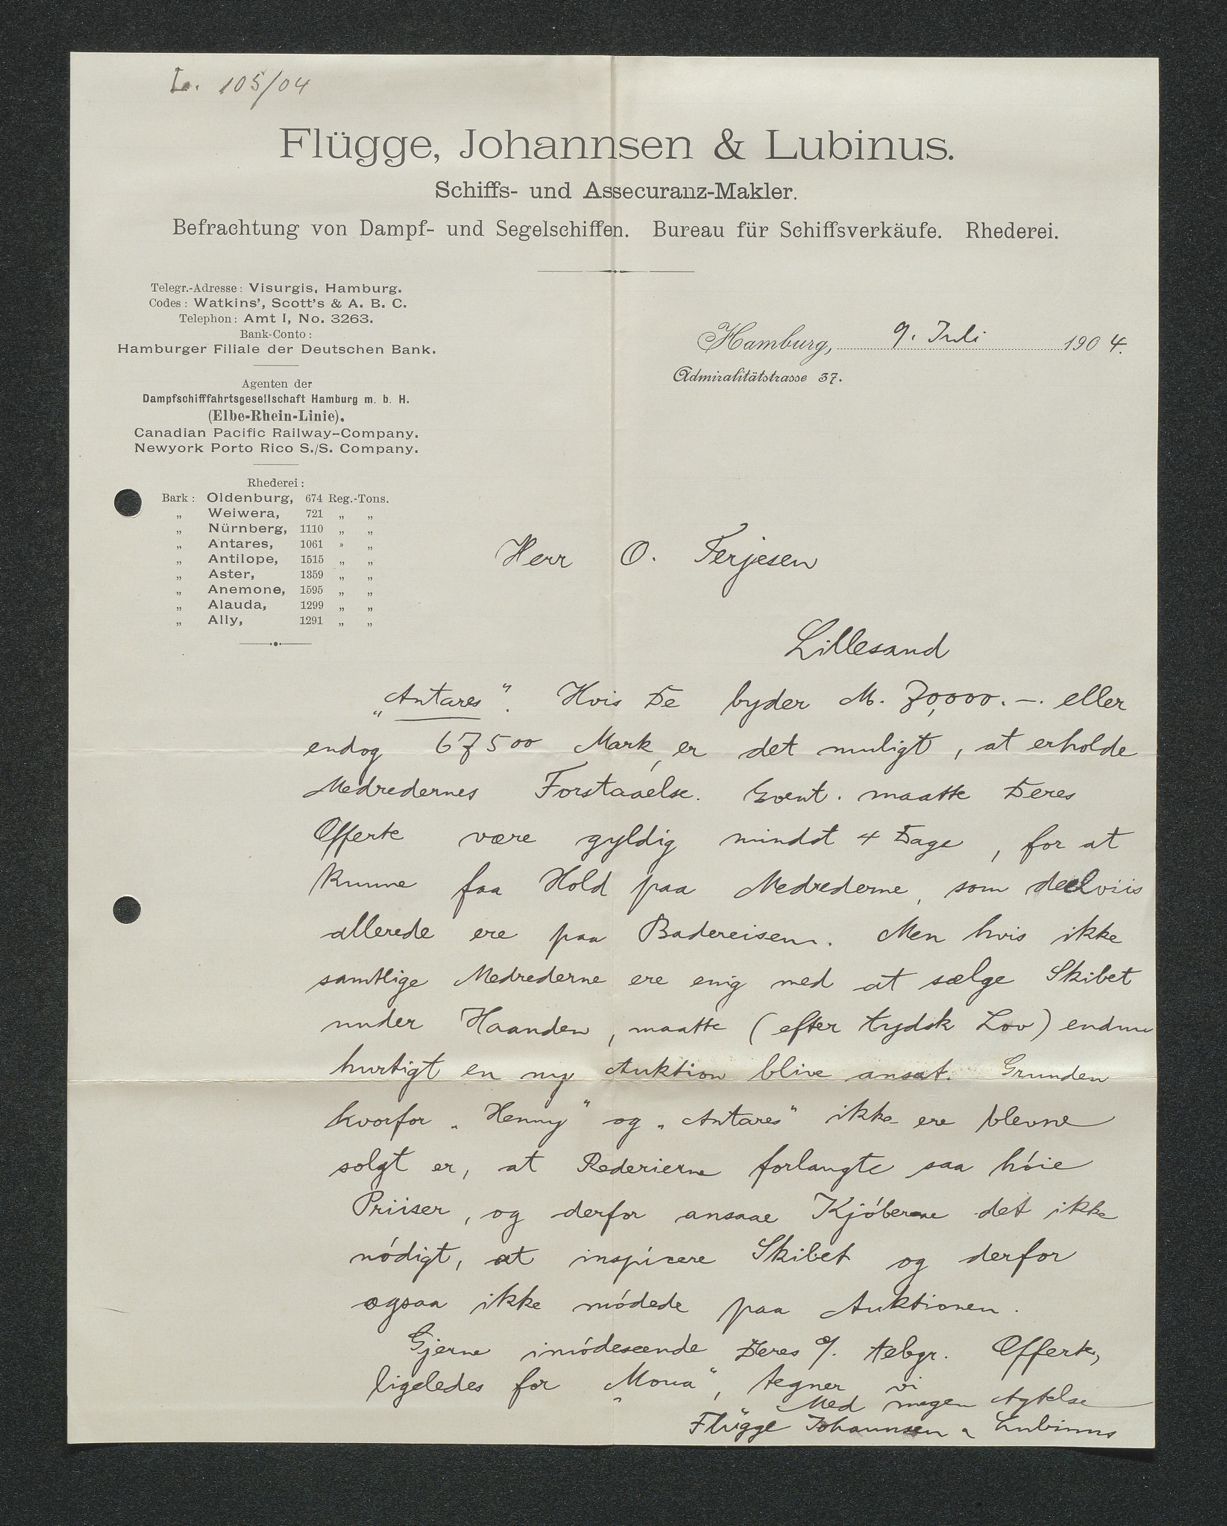 L. 105/04
Flügge, Johannsen & Lubinus.
Schiffs- und Assecuranz-Makler.
Befrachtung von Dampf- und Segelschiffen. Bureau für Schiffsverkäufe. Rhederei.
Telegr.-Adresse: Visurgis, Hamburg.
Codes: Watkins', Scott's & A. B. C.
Telephon: Amt I, No. 3263.
Bank-Conto:
Hamburger Filiale der Deutschen Bank.
Agenten der
Dampfschifffahrtsgesellschaft Hamburg m. b. H.
(Elbe-Rhein-Linie).
Canadian Pacific Railway-Company.
Newyork Porto Rico S./S. Company.
Rhederei:
Bark: Oldenburg, 674 Reg.-Tons.
„ Weiwera, 721 „ „
„ Nürnberg, 1110 „ „
„ Antares, 1061 „ „
„ Antilope, 1515 „ „
„ Aster, 1359 „ „
„ Anemone, 1595 „ „
„ Alauda, 1299 „ „
„ Ally, 1291 „ „
Hamburg, 9. Juli 1904.
Admiralitätstrasse 37.
Herr O. Terjesen
Lillesand
„Antares". Hvis De byder M. 70,000.-. eller
endog 67500 Mark, er det muligt, at erholde
Medredernes Forstaaelse. Event. maatte Deres
Offerte være gyldig mindst 4 Dage, for at
kunne faa Hold paa Medrederne, som deelviis
allerede ere paa Badereisen. Men hvis ikke
samtlige Medrederne ere enig med at sælge Skibet
under Haanden, maatte (efter tydsk Lov) endnu
hurtigt en ny Auktion blive ansat. Grunden
hvorfor „Henny" og „Antares" ikke ere blevne
solgt er, at Rederierne forlangte saa hóie
Priiser, og derfor ansaae Kjóberne det ikke
nódigt, at inspicere Skibet og derfor
ogsaa ikke módede paa Auktionen.
Gjerne imódeseende Deres g. telegr. Offerte,
ligeledes for „Mona", tegner vi
Med megen Agtelse
Flügge Johannsen & Lubinus